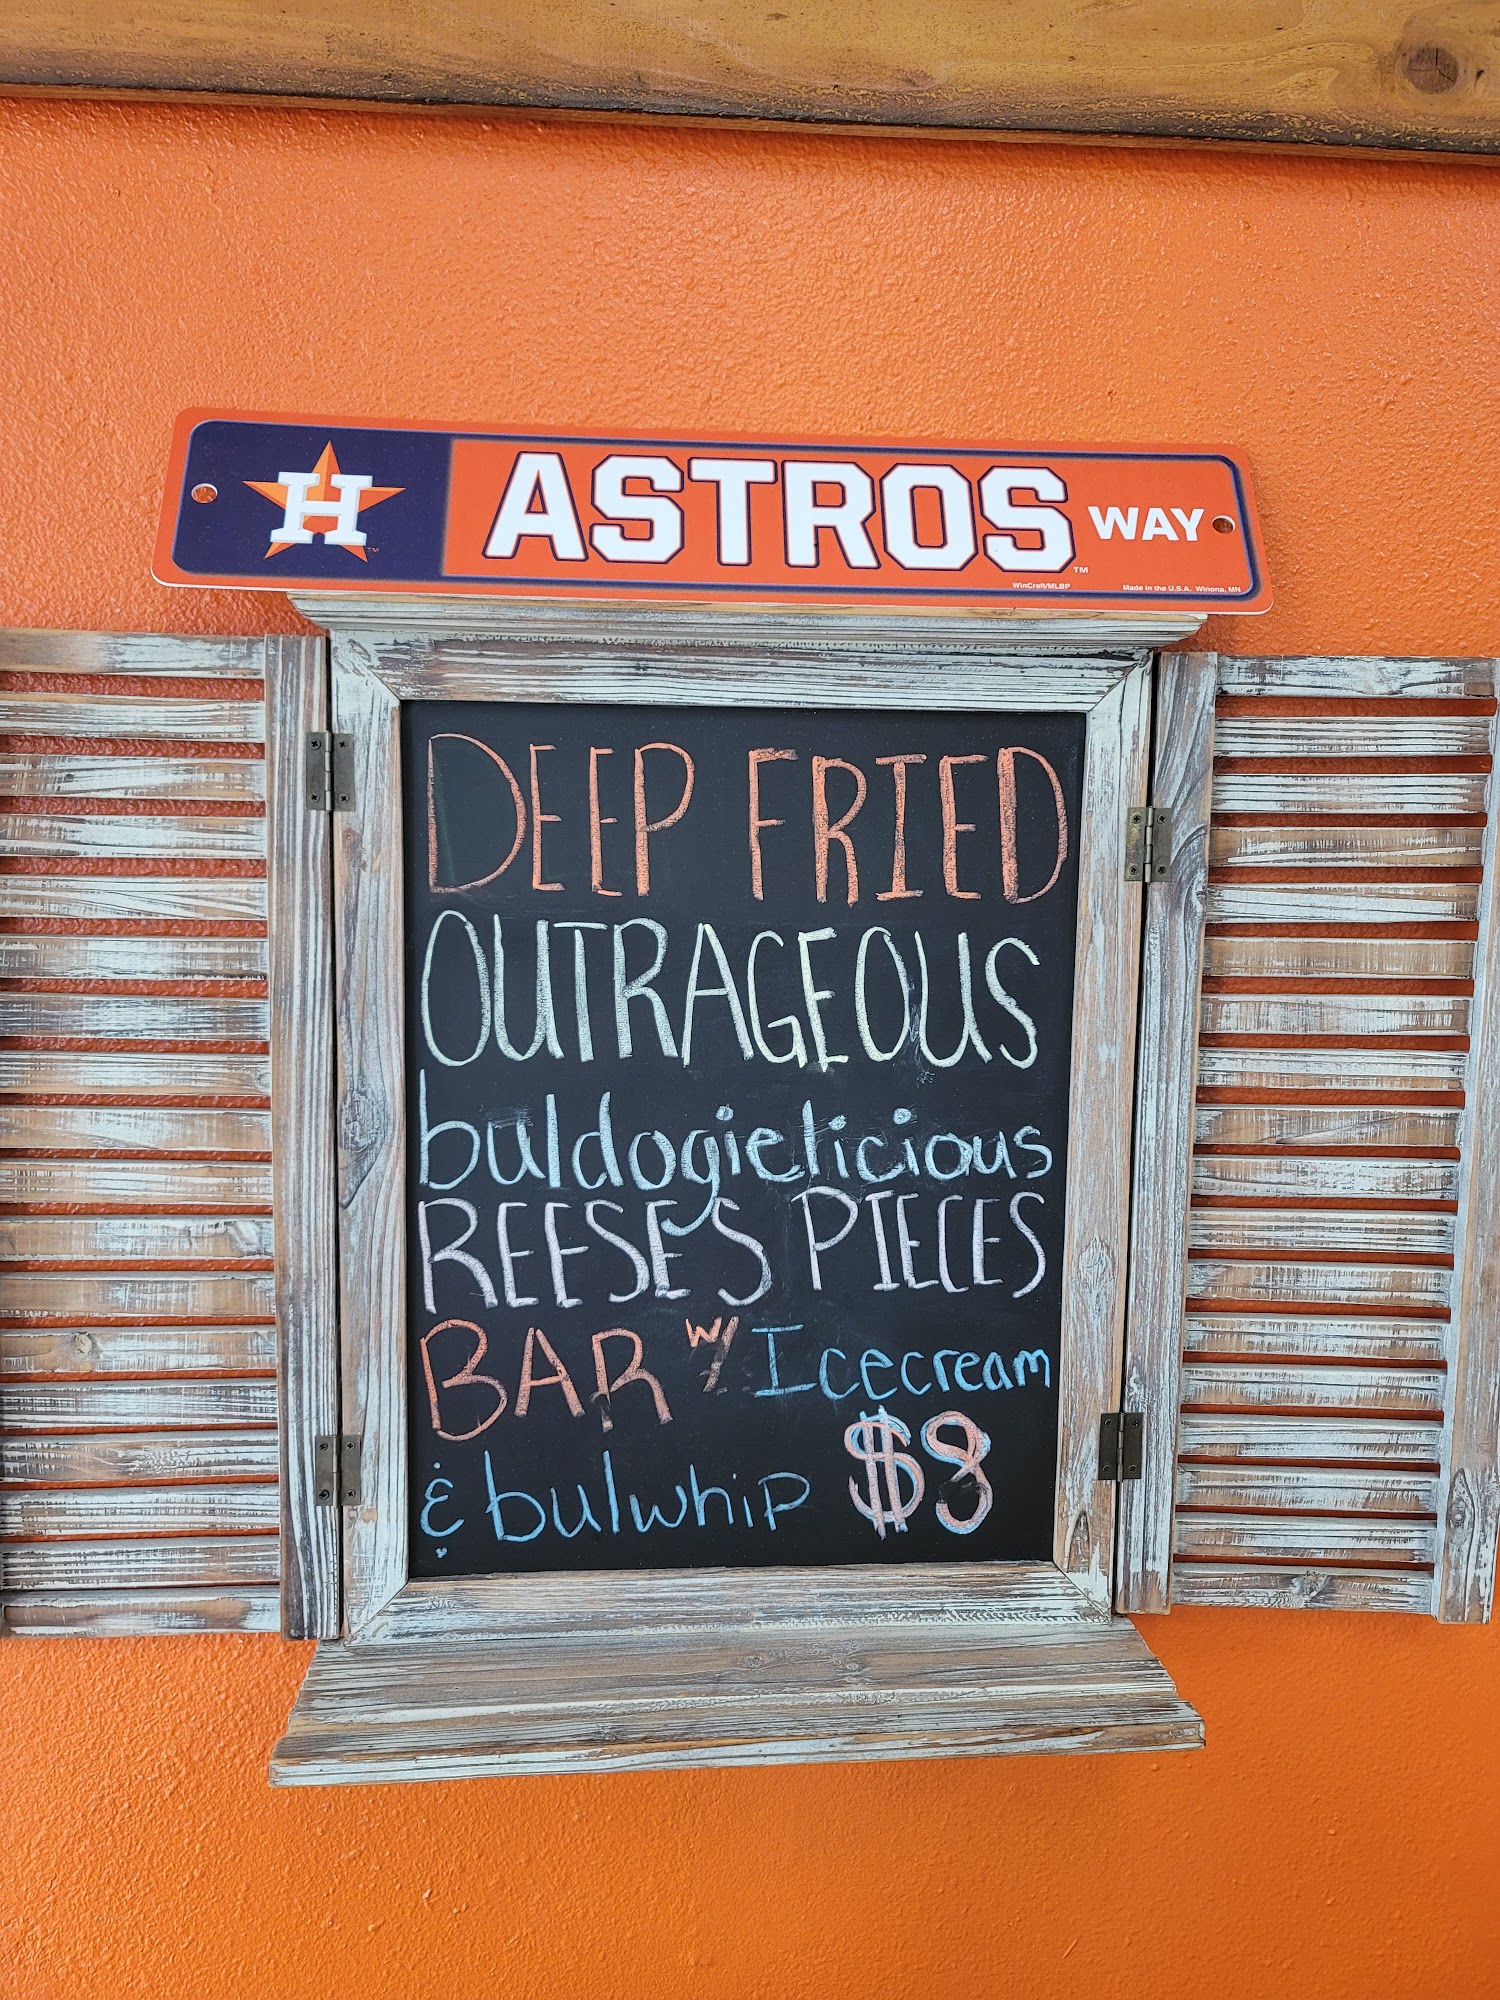 H ASTROS WAY
TM
TM
WinCraft/MLBP Made in the U.S.A. Winona, MN
DEEP FRIED
OUTRAGEOUS
buldogielicious
REESE'S PIECES
BAR w/ Icecream
& bulwhip $8